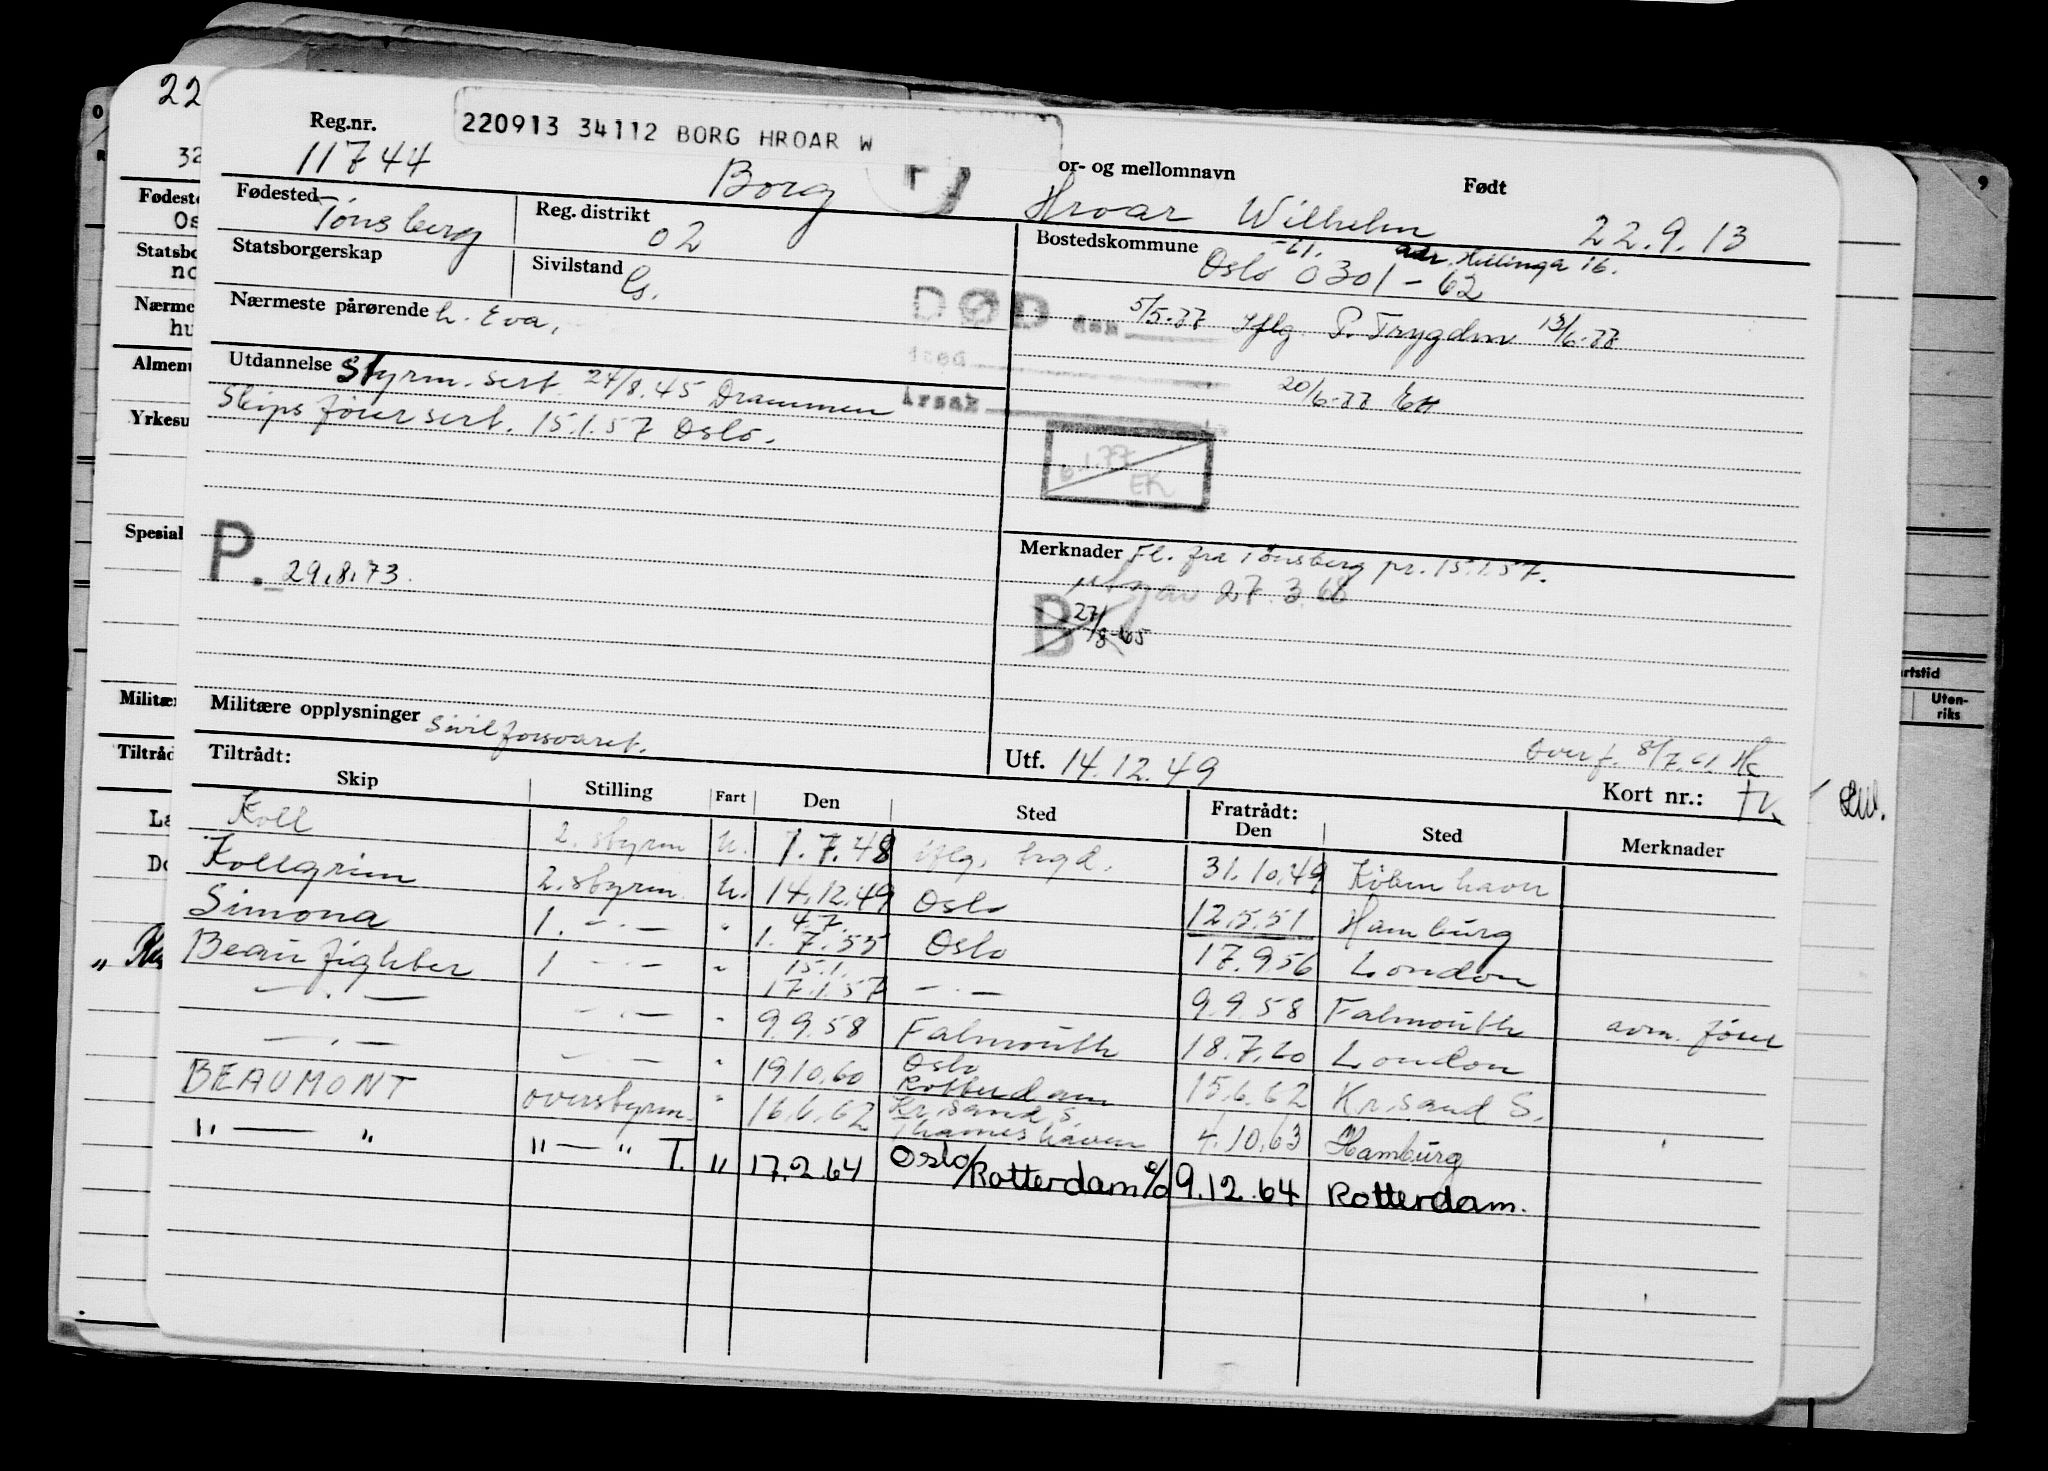 22
Reg.nr.
220913 34112 BORG HROAR W
or- og mellomnavn
Født
11744
Borg
Hroar Wilhelm
22.9.13
Fødested
Tønsberg
Reg. distrikt
02
Bostedskommune
-61.
adr. Hellinga 16.
Oslo 0301-62
Statsborgerskap
Sivilstand
G.
Nærmeste pårørende h. Eva.
DØD den 5/5-77 Iflg. P. Trygden 13/6-77
sted
20/6-77
årsak
Utdannelse Styrm. sert. 24/8.45 Drammen
Skipsfører sert. 15.1.57 Oslo.
6.1.77
EK
P. 29.8.73.
Merknader Fl. fra Tønsberg pr. 15.1.57.
27.3.68
B 27/8-65
Militære opplysninger Sivilforsvaret.
Utf. 14.12.49
Overf. 8/7.61.
Kort nr.:
Tiltrådt:
Skip Stilling Fart Den Sted Fratrådt: Den Sted Merknader
Koll 2. styrm u. 1.7.48 iflg. 31.10.49 København
Kollgrim 2. styrm. u. 14.12.49 Oslo 12.5.51 Hamburg
Simona 1. -"- " 4.7. 1.7.55 Oslo 17.9.56 London
Beaufighter 1 -"- " 15.1. 17.1.57 -"- 9.9.58 Falmouth avm. fører
-"- -"- " 9.9.58 Falmouth 18.7.60 London
-"- -"- " 19.10.60 Oslo Rotterdam 15.6.62 Kr.sand S.
BEAUMONT overstyrm. " 16.6.62 Kr.sand S. Thameshaven 4.10.63 Hamburg
" — " " — " T. " 17.2.64 Oslo/Rotterdam 9.12.64 Rotterdam.
32
Fødeste
Os
Statsbo
no
Nærme
hu
Almen
Yrkesu
Spesial
Militæ
Tiltråd
La
Do
rtstid
Uten-
riks
9